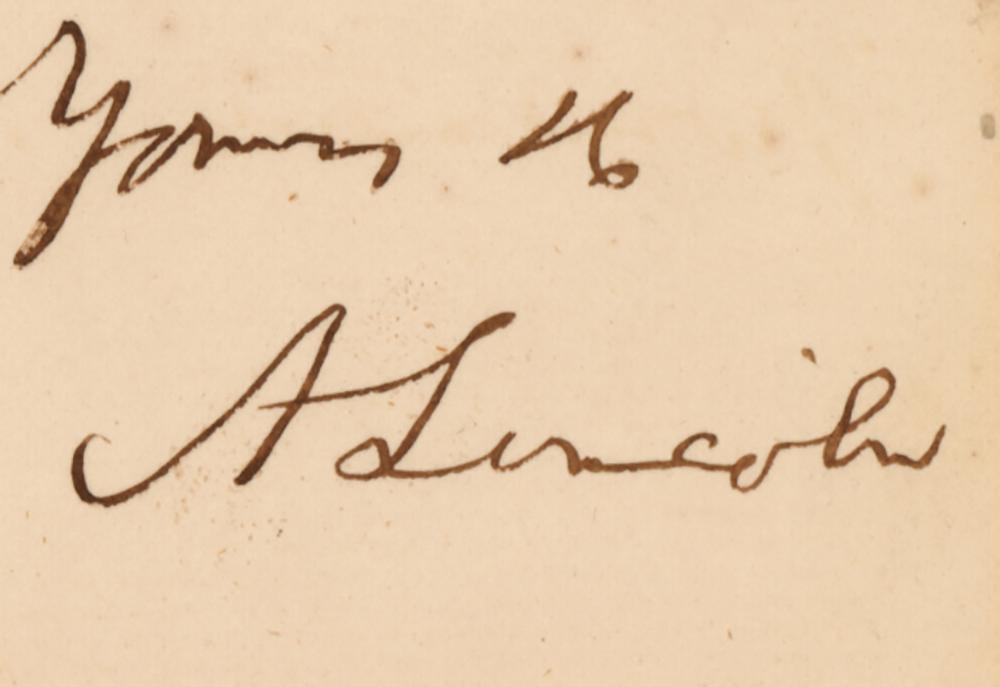 Yours &c
A Lincoln